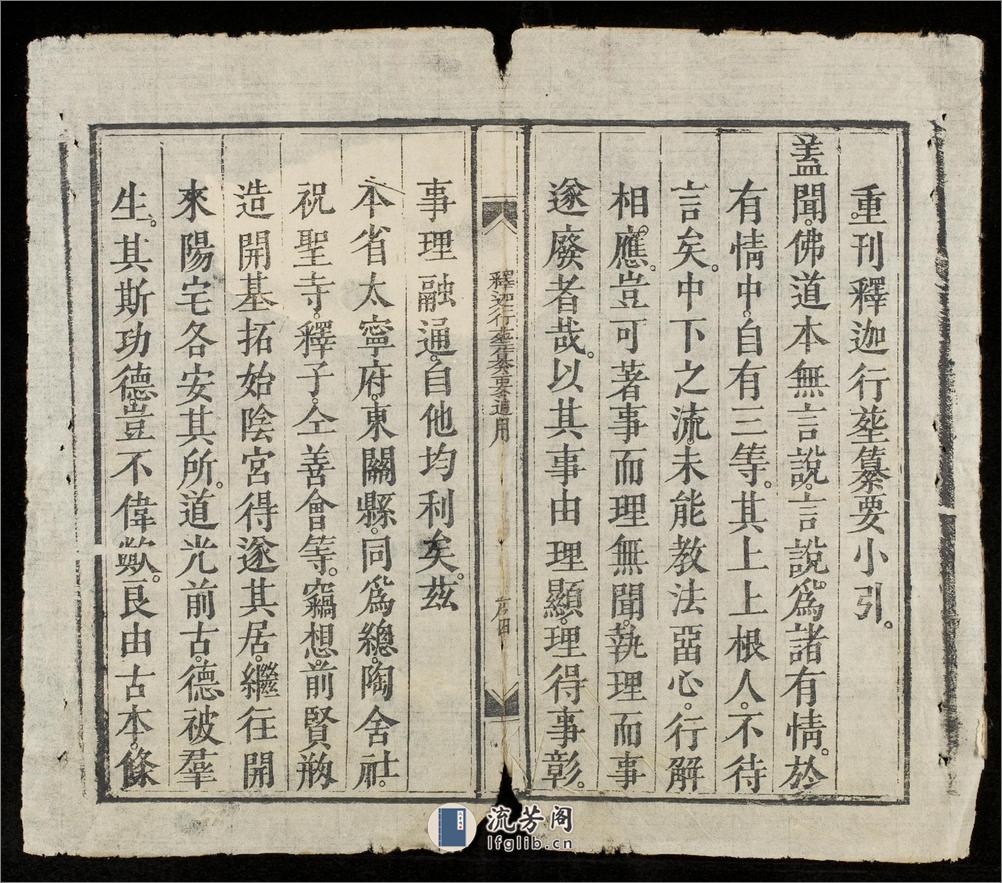 重刊釋迦行塟纂要小引。
蓋聞。佛道本無言說。言說。爲諸有情。於
有情中。自有三等。其上上根人。不待
言矣。中下之流。未能教法㽞心。行解
相應。豈可著事而理無聞。執理而事
遂廢者哉。以其事由理顯。理得事彰。
釋迦行塟纂要通用
事理融通。自他均利矣。茲
本省太寧府。東關縣。同爲總。陶舍社。
祝聖寺。釋子。仝善會等。竊想。前賢刱
造開基拓始。陰宮得遂其居。繼往開
來。陽宅各安其所。道光前古。德被羣
生。其斯功德。豈不偉歟。良由古本。條
流芳阁
lfglib.cn